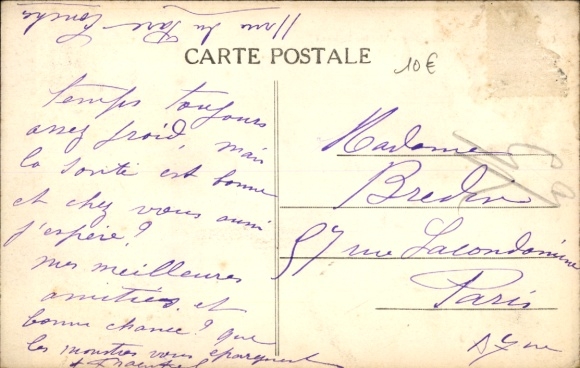 11 rue du Parc
CARTE POSTALE
10€
temps toujours
assez froid, mais
la santé est bonne
et chez vous aussi
j'espère?
mes meilleures
amitiés et
bonne chance? que
les monstres vous épargnent
Madame
Bredin
57 rue Lacondamine
Paris